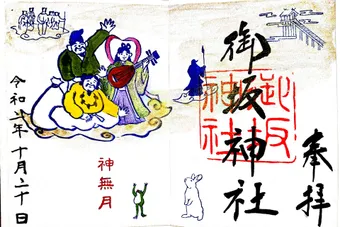 奉拝
御坂神社
御坂
神社
神無月
令和弐年十月二十日